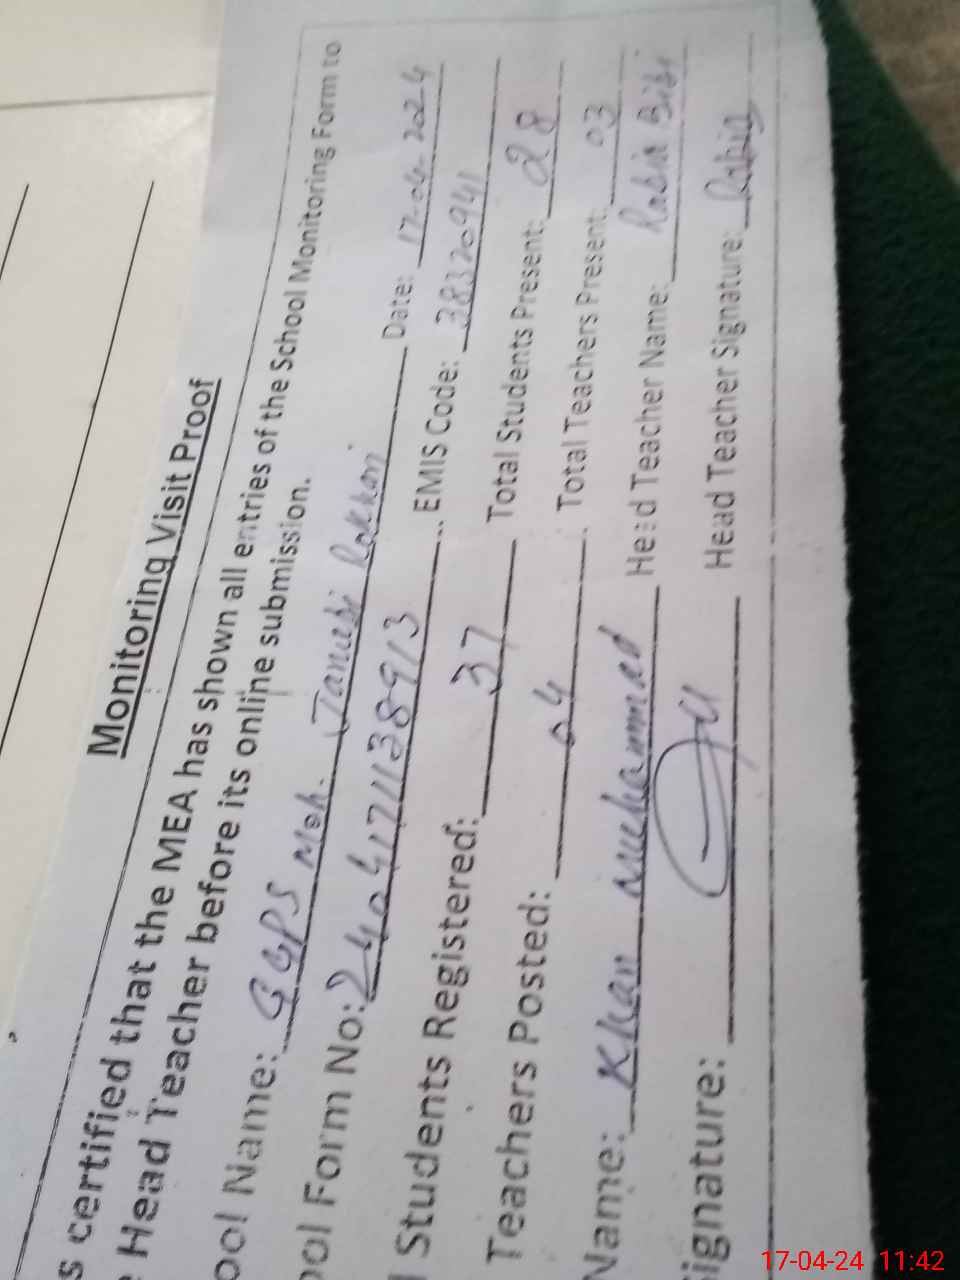 Monitoring Visit Proof
s certified that the MEA has shown all entries of the School Monitoring Form to
Head Teacher before its online submission.
ool Name: GGPS Moh. Janubi Rokhari Date: 17-04-2024
ool Form No: 2404171138913 EMIS Code: 38320941
l Students Registered: 37 Total Students Present: 28
Teachers Posted: 04 Total Teachers Present: 03
Name: Khan Muhammad Head Teacher Name: Rabia Bibi
ignature: Head Teacher Signature: Rabia
17-04-24 11:42